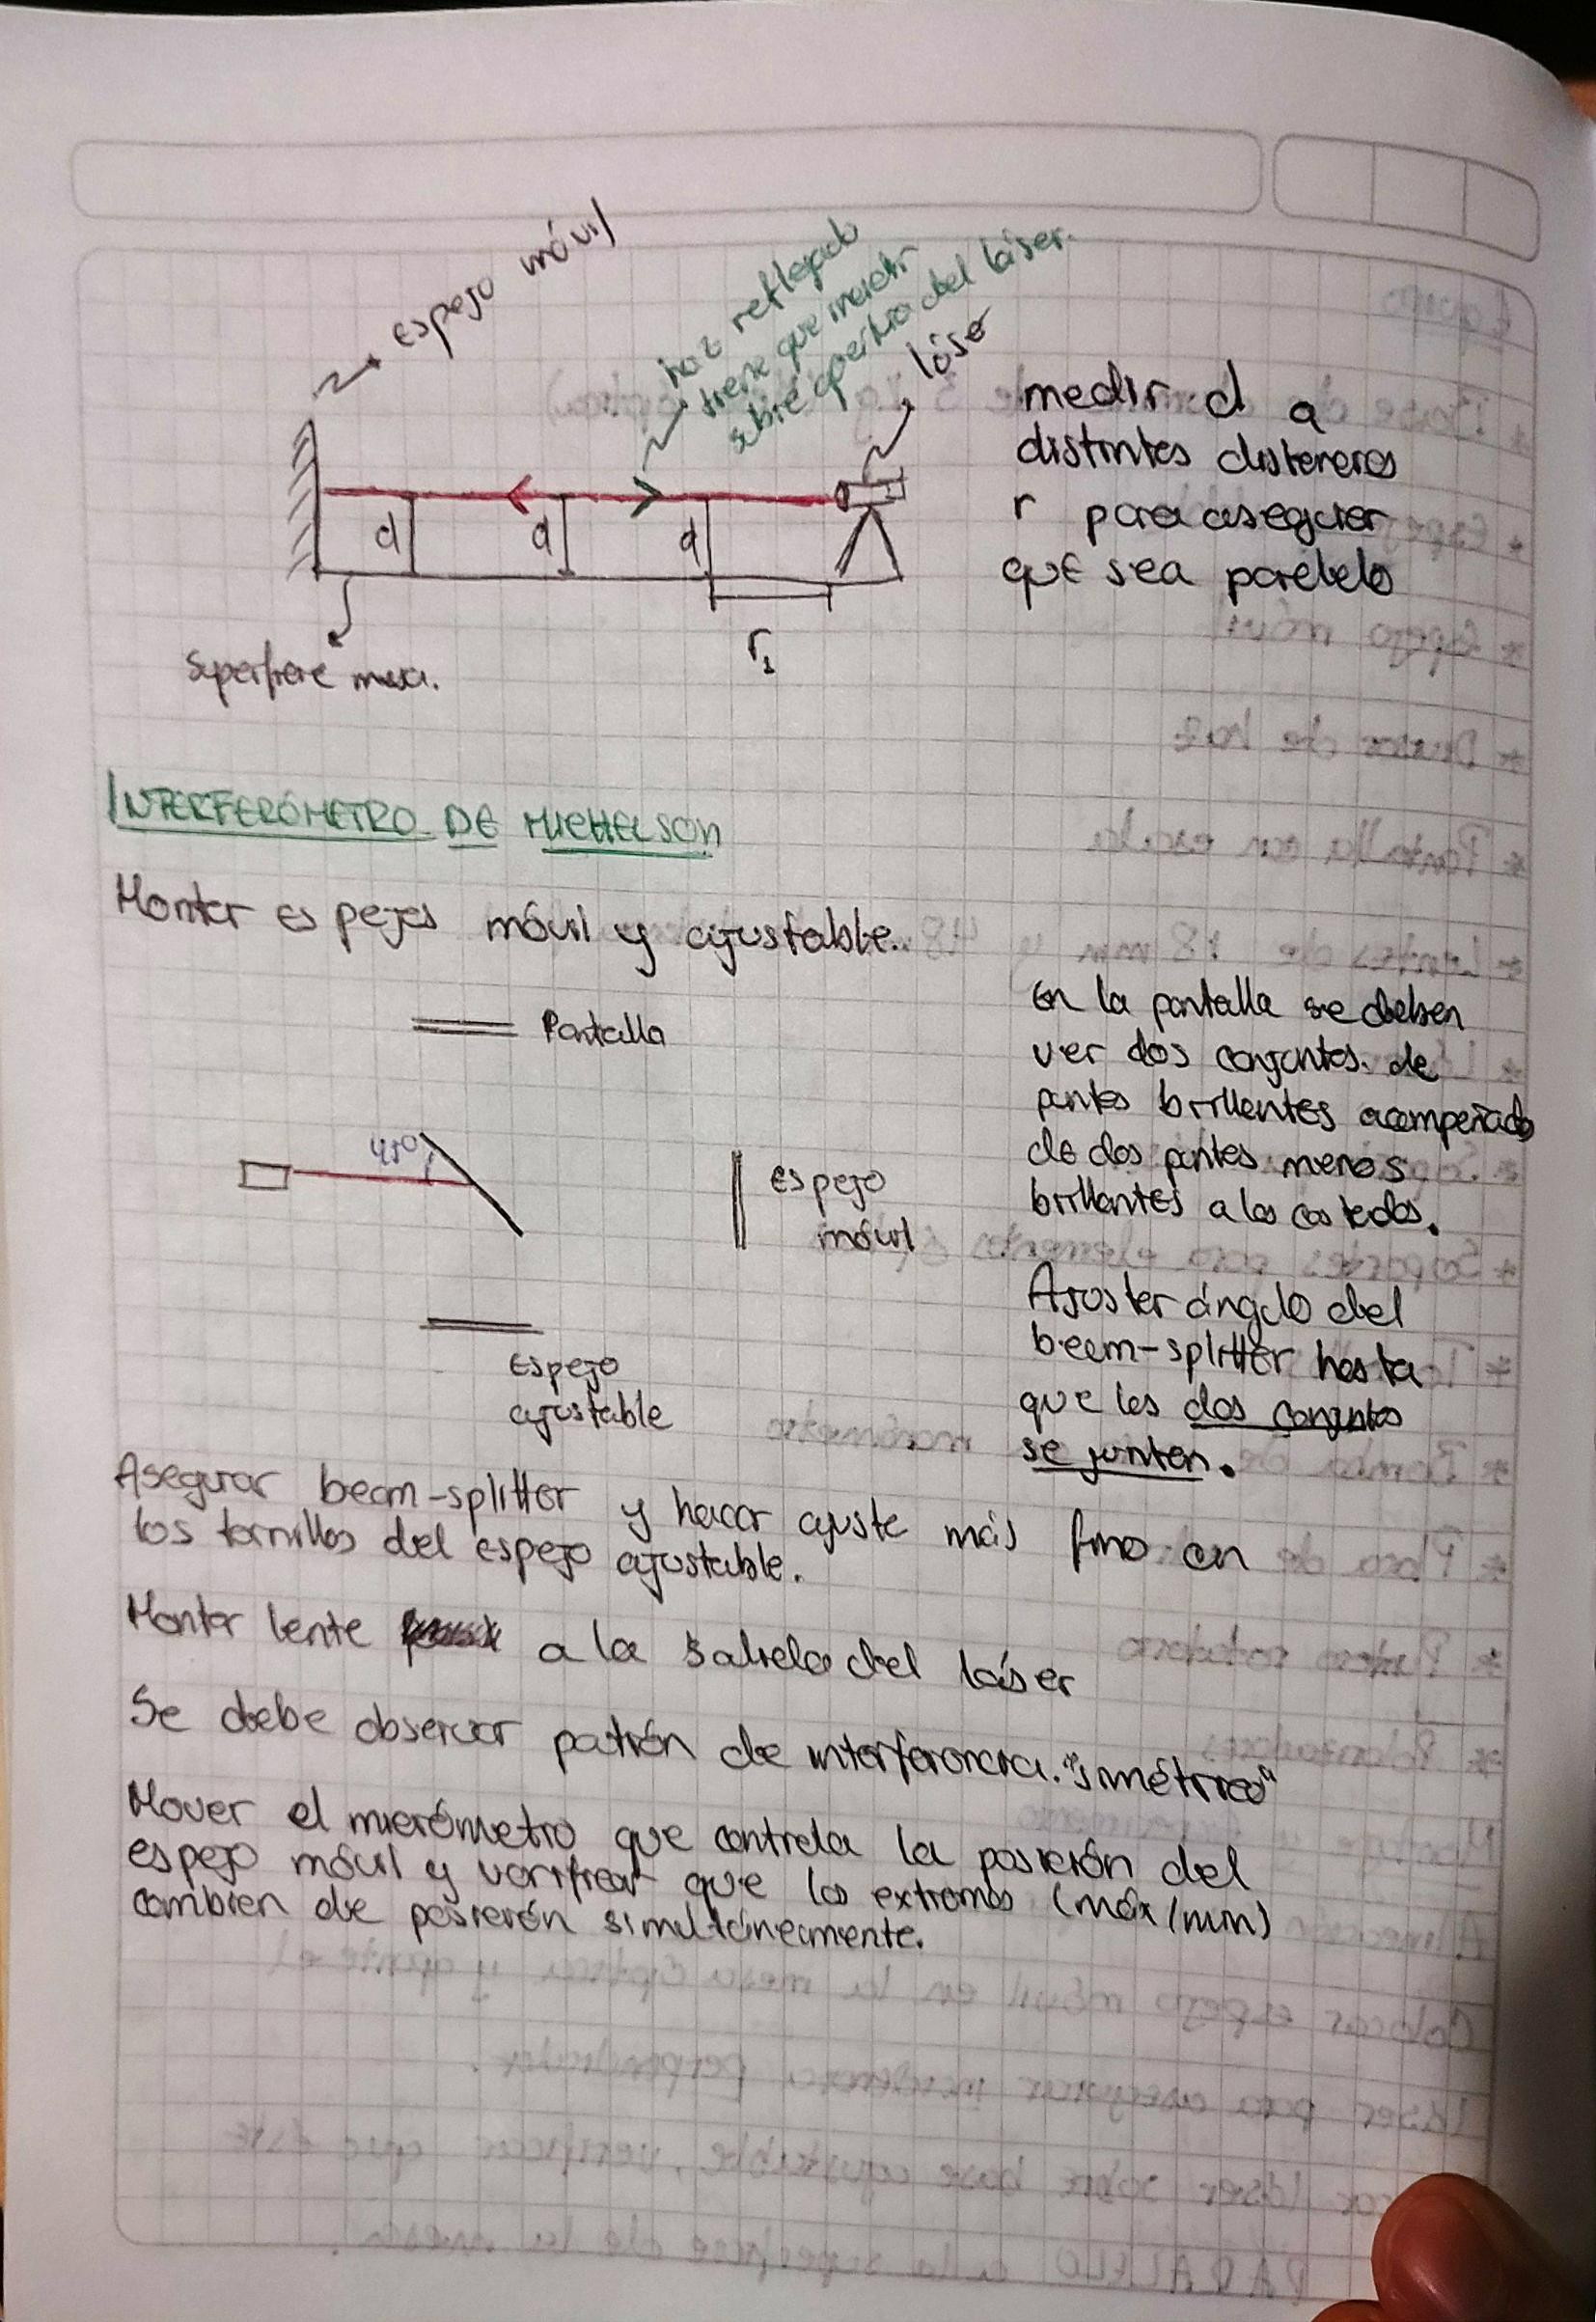 espejo móvil
haz reflejado
tiene que incidir
sobre apertura del láser.
láser
medir d a
distintas distancias
r para asegurar
que sea paralelo
d
d
d
r₁
Superficie mesa.
INTERFERÓMETRO DE MICHELSON
Montar espejos móvil y ajustable.
Pantalla
45°
espejo
móvil
Espejo
ajustable
En la pantalla se deben
ver dos conjuntos de
puntos brillantes acompañado
de dos puntos menos
brillantes a los costados.
Ajustar ángulo del
beam-splitter hasta
que los dos conjuntos
se junten.
Asegurar beam-splitter y hacer ajuste más fino en
los tornillos del espejo ajustable.
Montar lente a la salida del láser
Se debe observar patrón de interferencia. "simétrico"
Mover el micrómetro que controla la posición del
espejo móvil y verificar que los extremos (máx/mín)
cambien de posición simultáneamente.